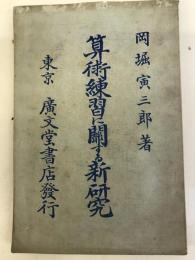 岡堀寅三郎著
算術練習に關する新研究
東京 廣文堂書店發行